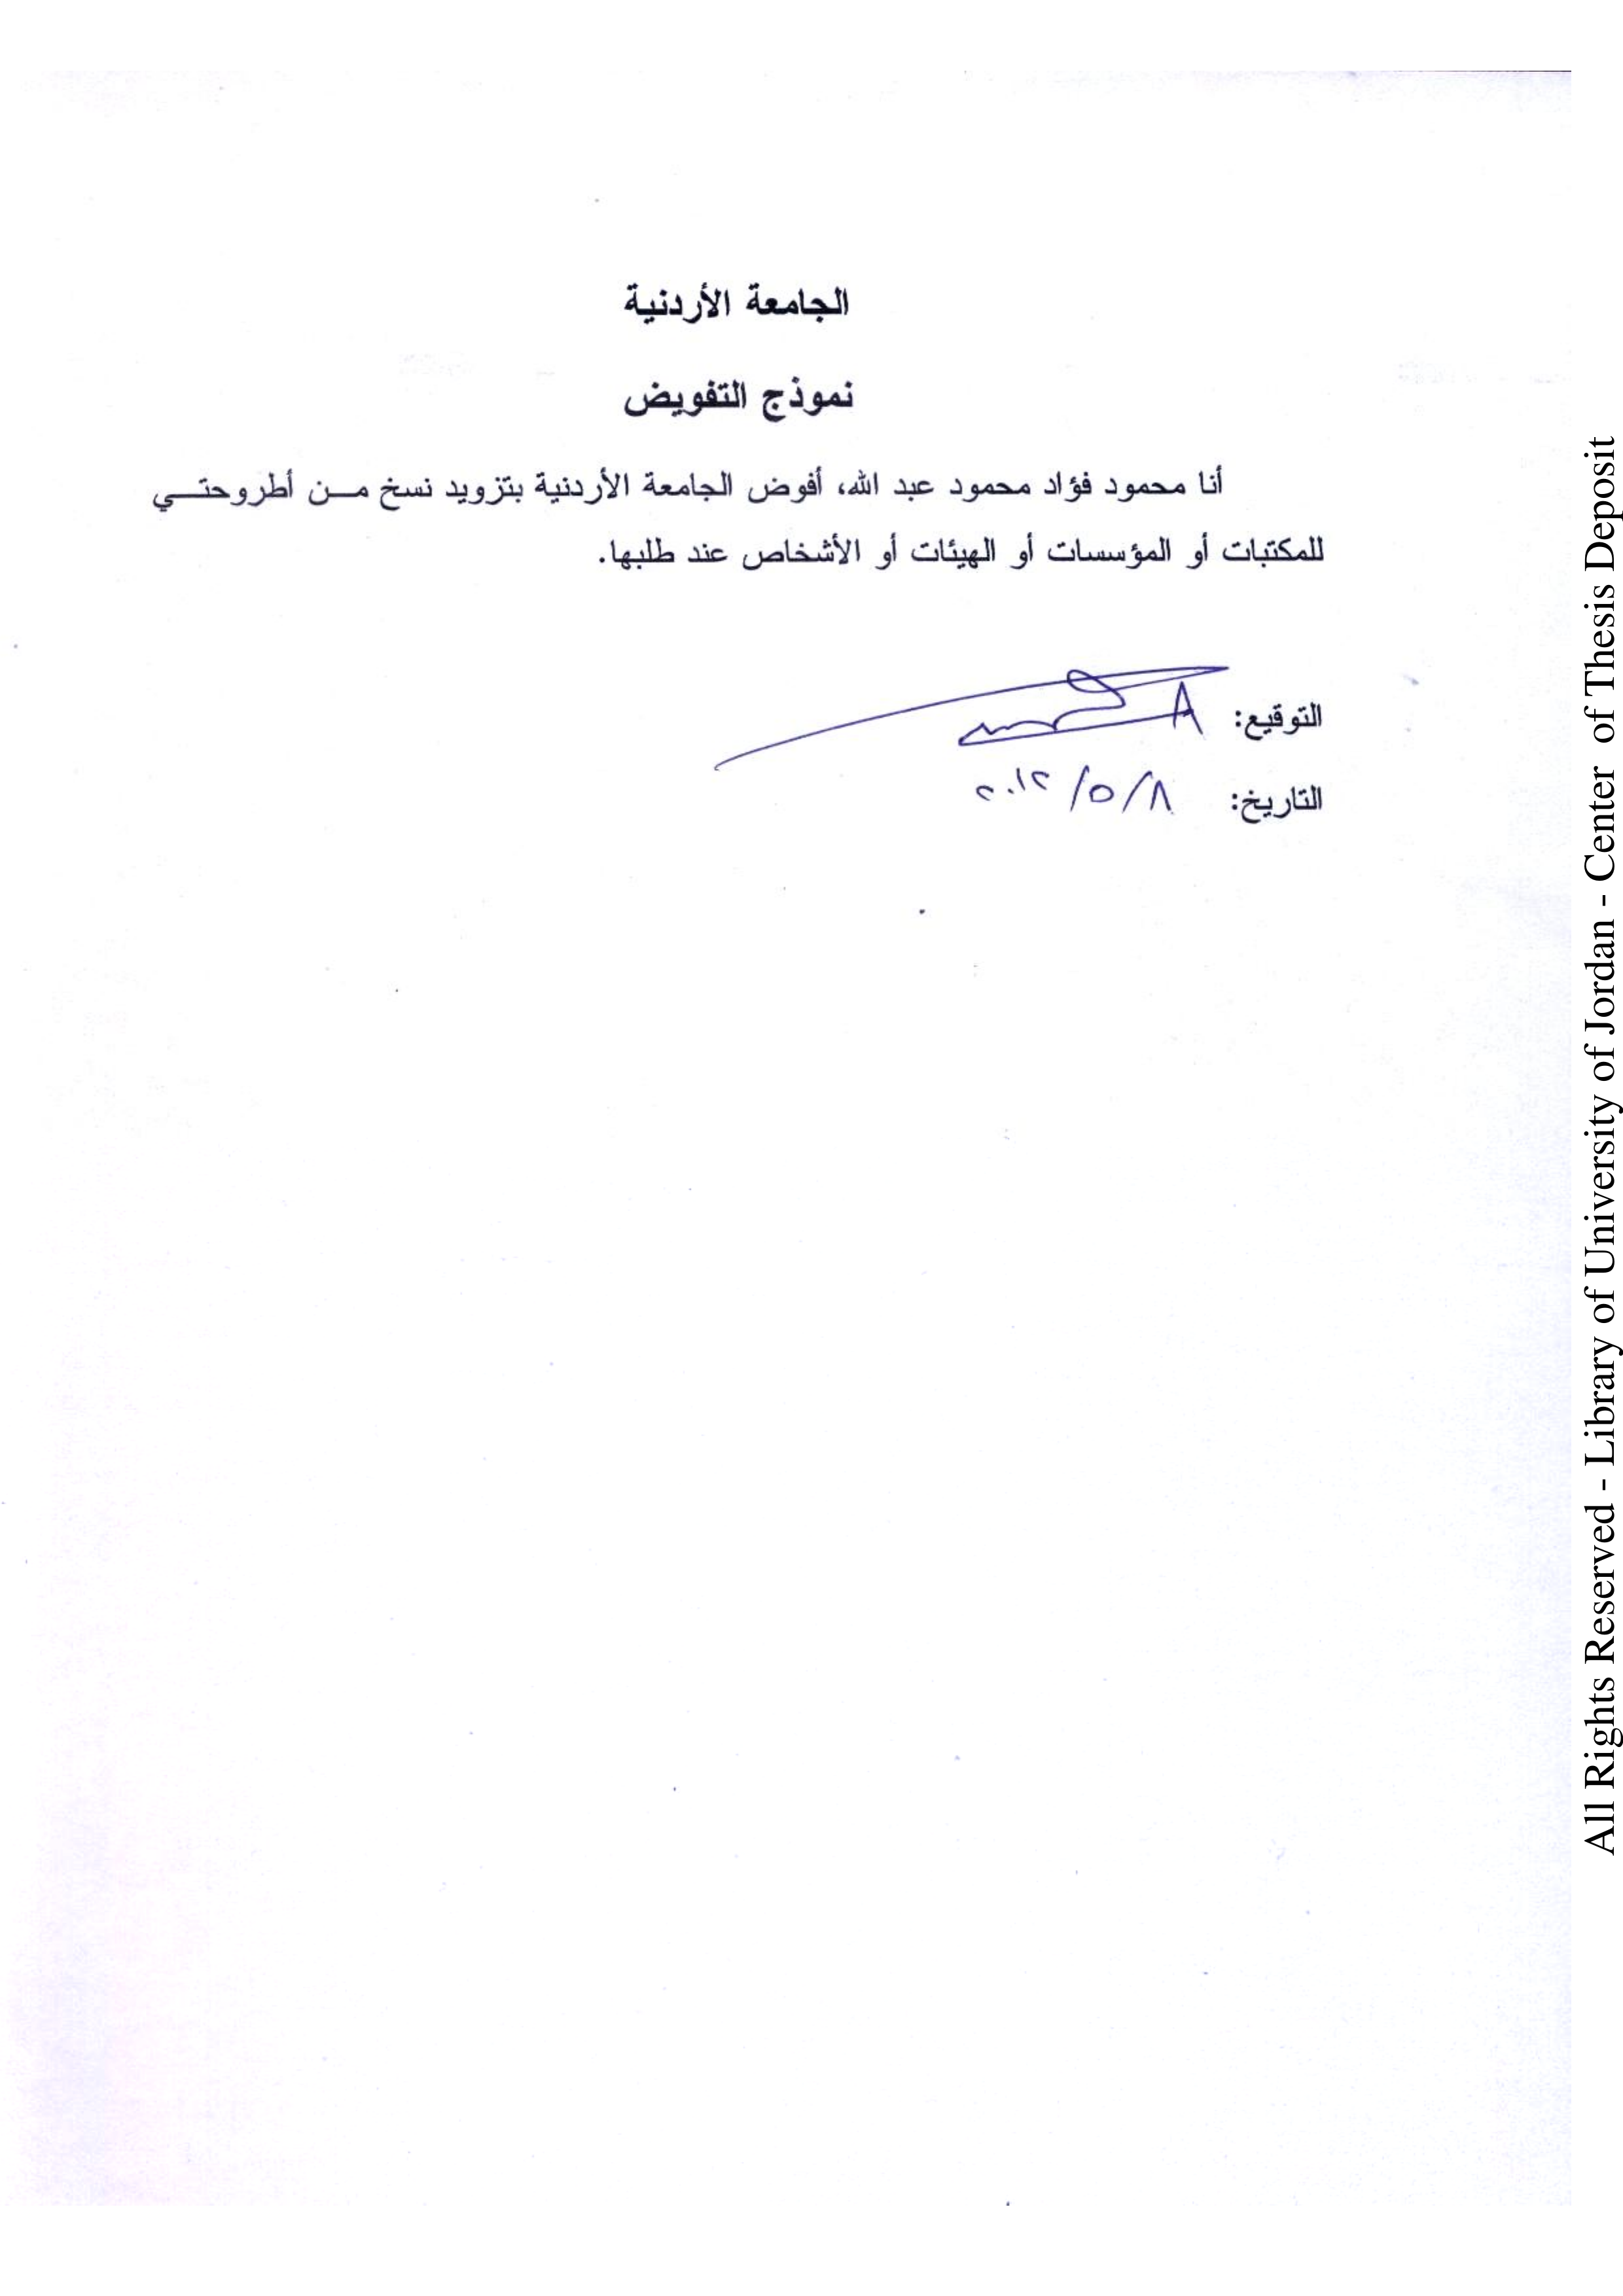 الجامعة الأردنية
نموذج التفويض
أنا محمود فؤاد محمود عبد الله، أفوض الجامعة الأردنية بتزويد نسخ مـــن أطروحتـــي
للمكتبات أو المؤسسات أو الهيئات أو الأشخاص عند طلبها.
التوقيع:
التاريخ: ٨/٥/٢٠١٢
All Rights Reserved - Library of University of Jordan - Center of Thesis Deposit